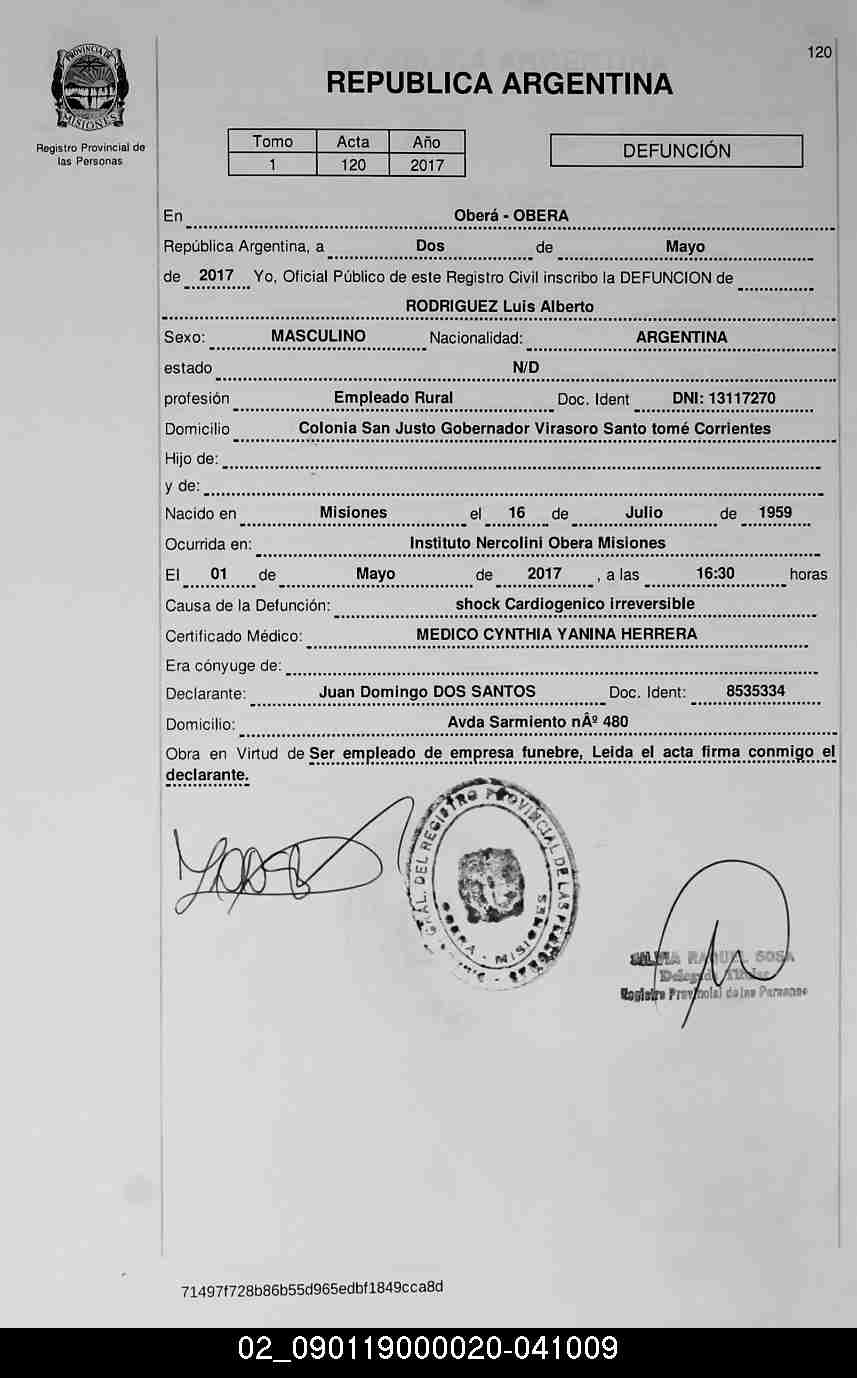 120
PROVINCIA DE
MISIONES
Registro Provincial de
las Personas
REPUBLICA ARGENTINA
Tomo Acta Año
1 120 2017
DEFUNCIÓN
En Oberá - OBERA
República Argentina, a Dos de Mayo
de 2017 Yo, Oficial Público de este Registro Civil inscribo la DEFUNCION de
RODRIGUEZ Luis Alberto
Sexo: MASCULINO Nacionalidad: ARGENTINA
estado N/D
profesión Empleado Rural Doc. Ident DNI: 13117270
Domicilio Colonia San Justo Gobernador Virasoro Santo tomé Corrientes
Hijo de:
y de:
Nacido en Misiones el 16 de Julio de 1959
Ocurrida en: Instituto Nercolini Obera Misiones
El 01 de Mayo de 2017 , a las 16:30 horas
Causa de la Defunción: shock Cardiogenico irreversible
Certificado Médico: MEDICO CYNTHIA YANINA HERRERA
Era cónyuge de:
Declarante: Juan Domingo DOS SANTOS Doc. Ident: 8535334
Domicilio: Avda Sarmiento nÂº 480
Obra en Virtud de Ser empleado de empresa funebre, Leida el acta firma conmigo el
declarante.
GRAL. DEL REGISTRO PROVINCIAL DE LAS PERSONAS
OBERA - MISIONES
SILVIA RAQUEL SOSA
Delegada Titular
Registro Provincial de las Personas
71497f728b86b55d965edbf1849cca8d
02_090119000020-041009